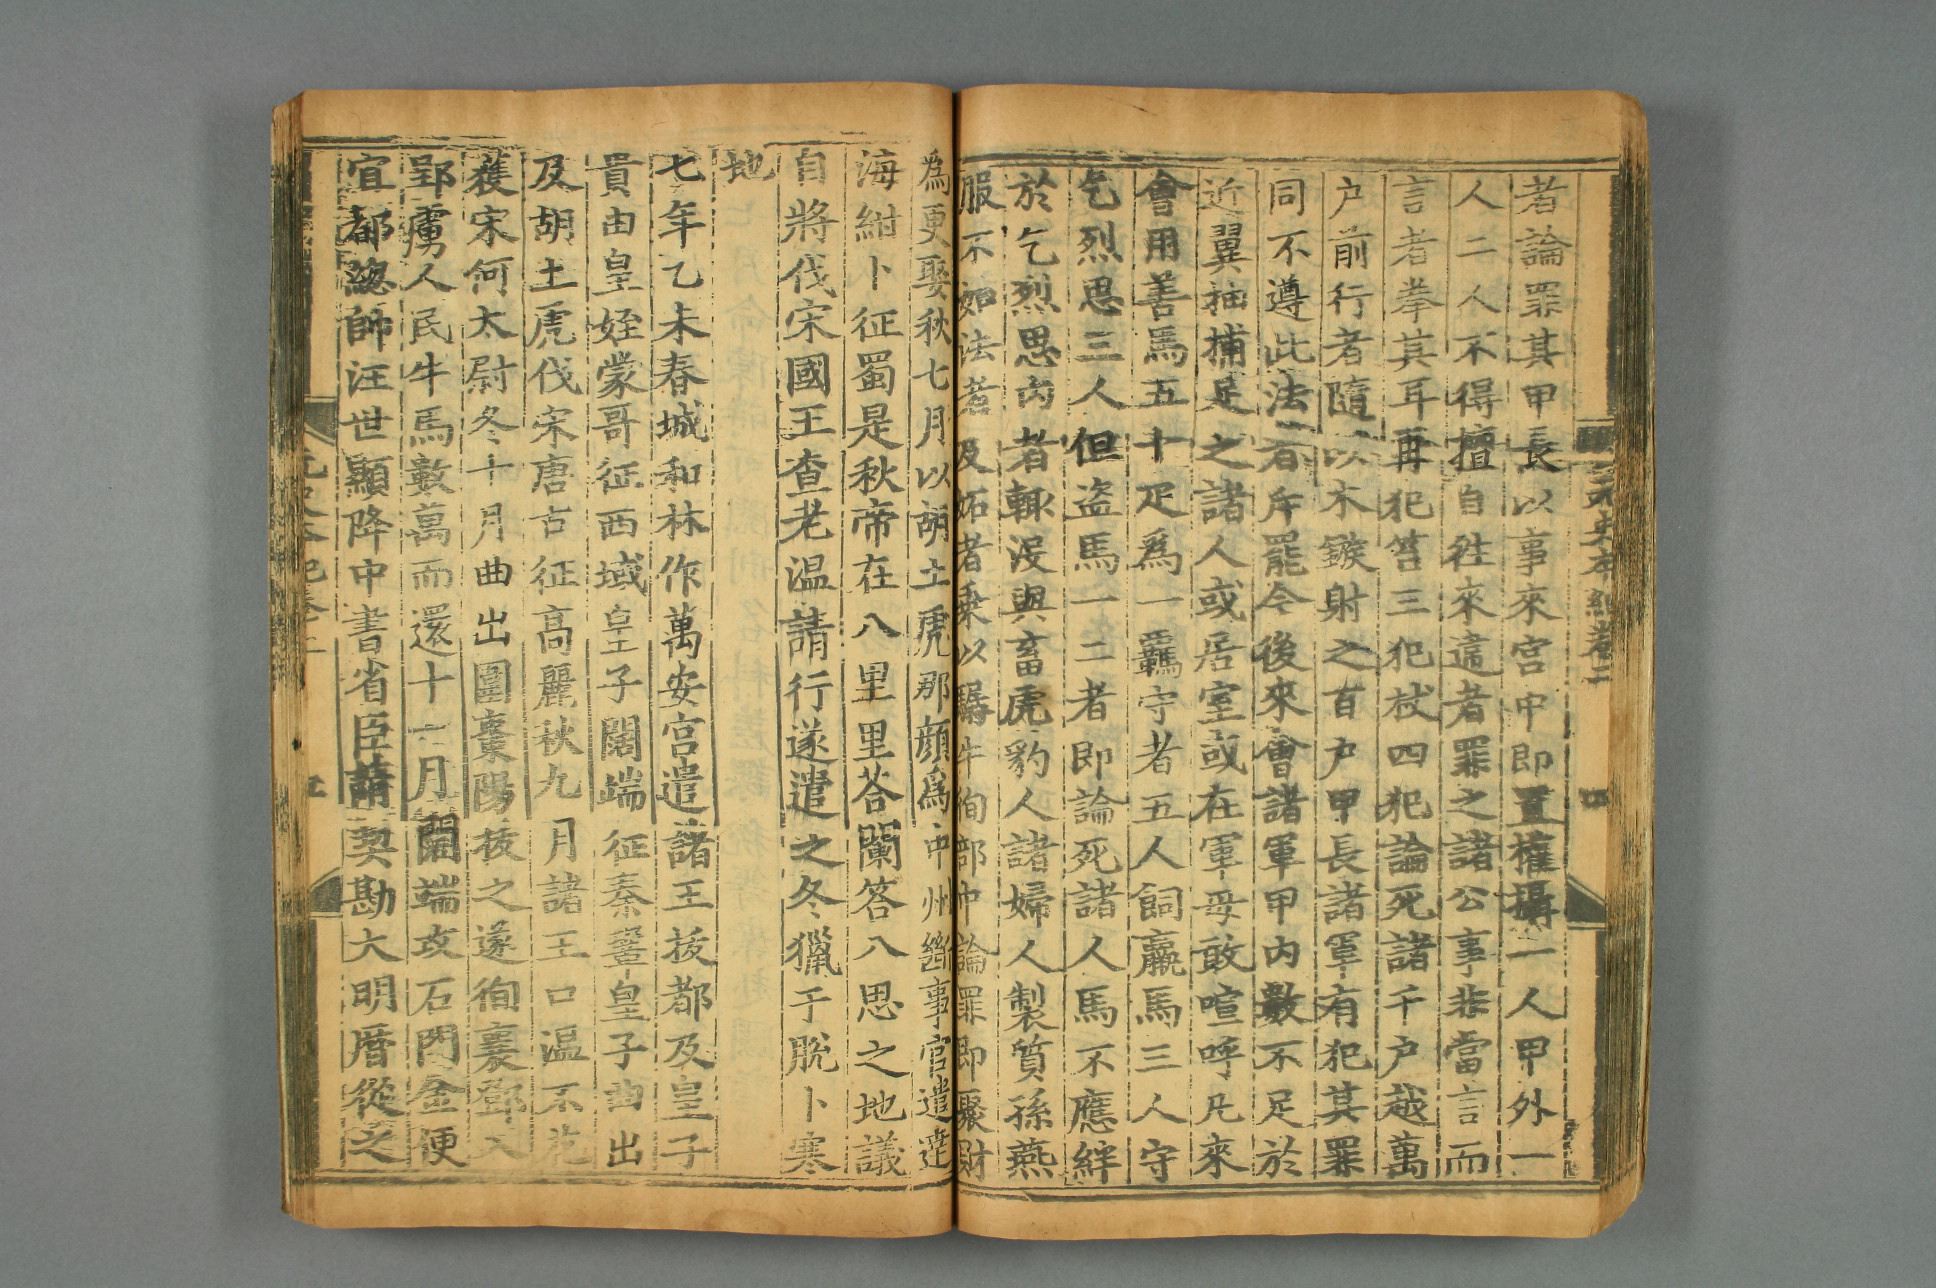 者論罪其甲長以事來宮中即置權攝一人甲外一
人二人不得擅自往來違者罪之諸公事非當言而
言者拳其耳再犯笞三犯杖四犯論死諸千户越萬
户前行者隨以木鏃射之百户甲長諸軍有犯其罪
同不遵此法者斥罷今後來會諸軍甲內數不足於
近翼抽補足之諸人或居室或在軍毋敢喧呼凡來
會用善馬五十疋爲一羈守者五人飼羸馬三人守
乞烈思三人但盗馬一二者即論死諸人馬不應絆
於乞烈思內者輒沒與畜虎豹人諸婦人製質孫燕
服不如法者及妬者乗以驏牛徇部中論罪即聚財
為更娶秋七月以胡土虎那顔爲中州斷事官遣達
海紺卜征蜀是秋帝在八里里荅闌答八思之地議
自將伐宋國王查老温請行遂遣之冬獵于脫卜寒
地
七年乙未春城和林作萬安宮遣諸王拔都及皇子
貴由皇姪蒙哥征西域皇子闊端征秦鞏皇子曲出
及胡土虎伐宋唐古征高麗秋九月諸王口温不花
獲宋何太尉冬十月曲出圍棗陽拔之遂徇襄鄧入
郢虜人民牛馬數萬而還十一月闊端攻石門金便
宜都總帥汪世顯降中書省臣請契勘大明曆從之
元史本紀卷二
四